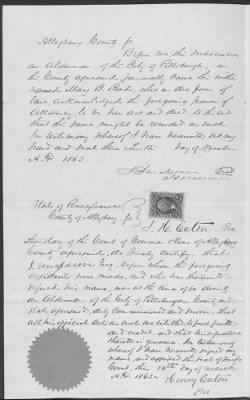 Allegheny County ss
Before me the Subscriber
an Alderman of the City of Pittsburgh, in
the County aforesaid personally came the within
named Mary B. who in due form of
law acknowledged the foregoing power of
Attorney to be her act and deed to the end
that the same might be recorded as such
In testimony whereof I have hereunto set my
hand and seal this tenth day of March
A.D. 1863
Alderman
State of Pennsylvania
County of Allegheny ss
I, H. Eaton Pro
thonotary of the Court of Common Pleas of Allegheny
County aforesaid, do hereby certify, that
Esq. before whom the foregoing
affidavit was made, and who has thereunto
signed his name, was at the time of so doing
an Alderman of the City of Pittsburgh County and
State aforesaid, duly Commissioned and sworn, that
all his official Acts as such are entitled to full faith
and credit, and that his signature
thereto is genuine. In testimony
whereof I have hereunto signed my
name, and affixed the seal of said
Court, this 14th day of March
A.D. 1863
Henry Eaton
Pro